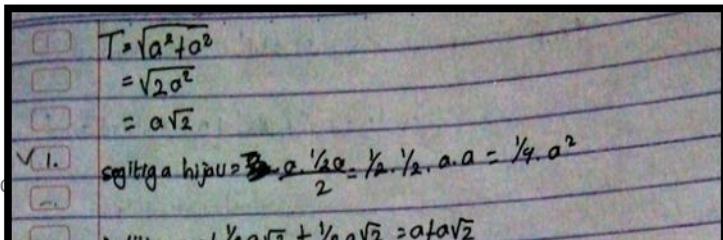 T = √a²+a²
= √2a²
= a√2
√ 1. segitiga hijau = a.½a/2 = ½.½.a.a = ¼.a²
½a√2 + ½a√2 = a+a√2